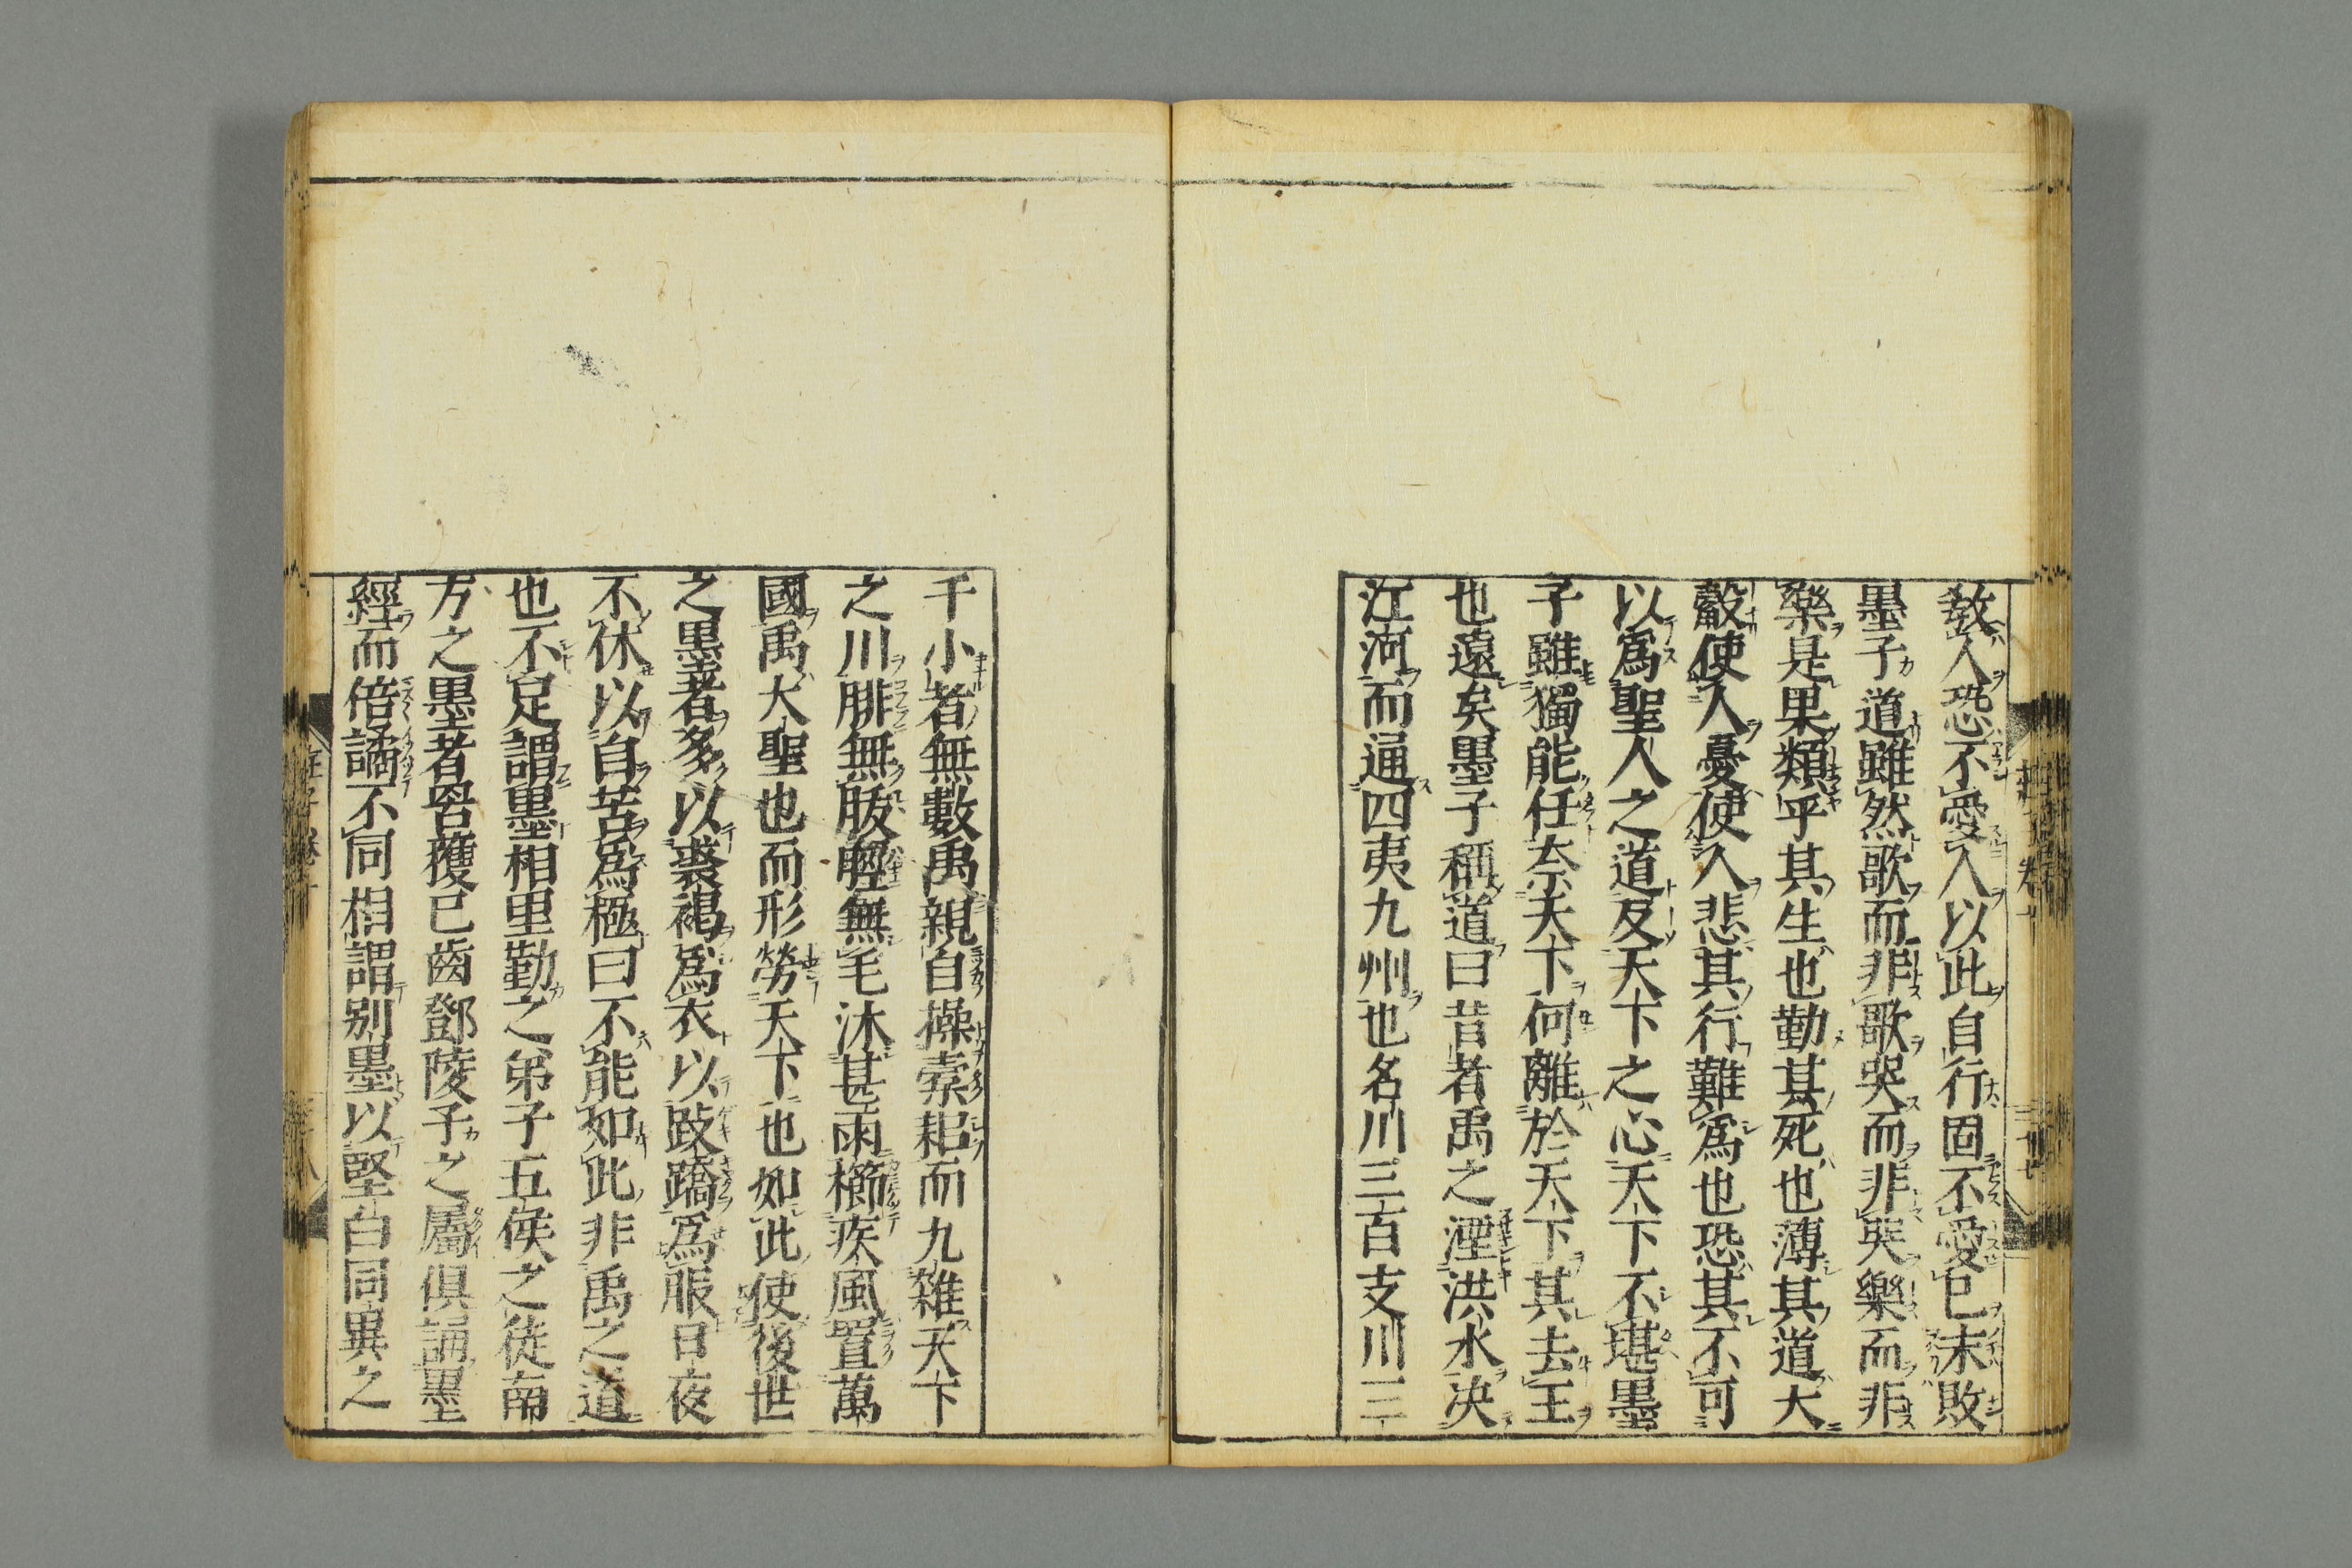 教人恐不愛人以此自行固不愛已末敗
墨子道雖然歌而非歌哭而非哭樂而非
樂是果類乎其生也勤其死也薄其道大
觳使人憂使人悲其行難爲也恐其不可
以爲聖人之道反天下之心天下不堪墨
子雖獨能任奈天下何離於天下其去王
也遠矣墨子稱道曰昔者禹之湮洪水决
江河而通四夷九州也名川三百支川三
千小者無數禹親自操橐耜而九雜天下
之川腓無胈脛無毛沐甚雨櫛疾風置萬
國禹大聖也而形勞天下也如此使後世
之墨者多以裘褐爲衣以跂蹻爲服日夜
不休以自苦爲極曰不能如此非禹之道
也不足謂墨相里勤之弟子五侯之徒南
方之墨者苦獲已齒鄧陵子之屬俱誦墨
經而倍譎不同相謂别墨以堅白同異之
莊子卷十